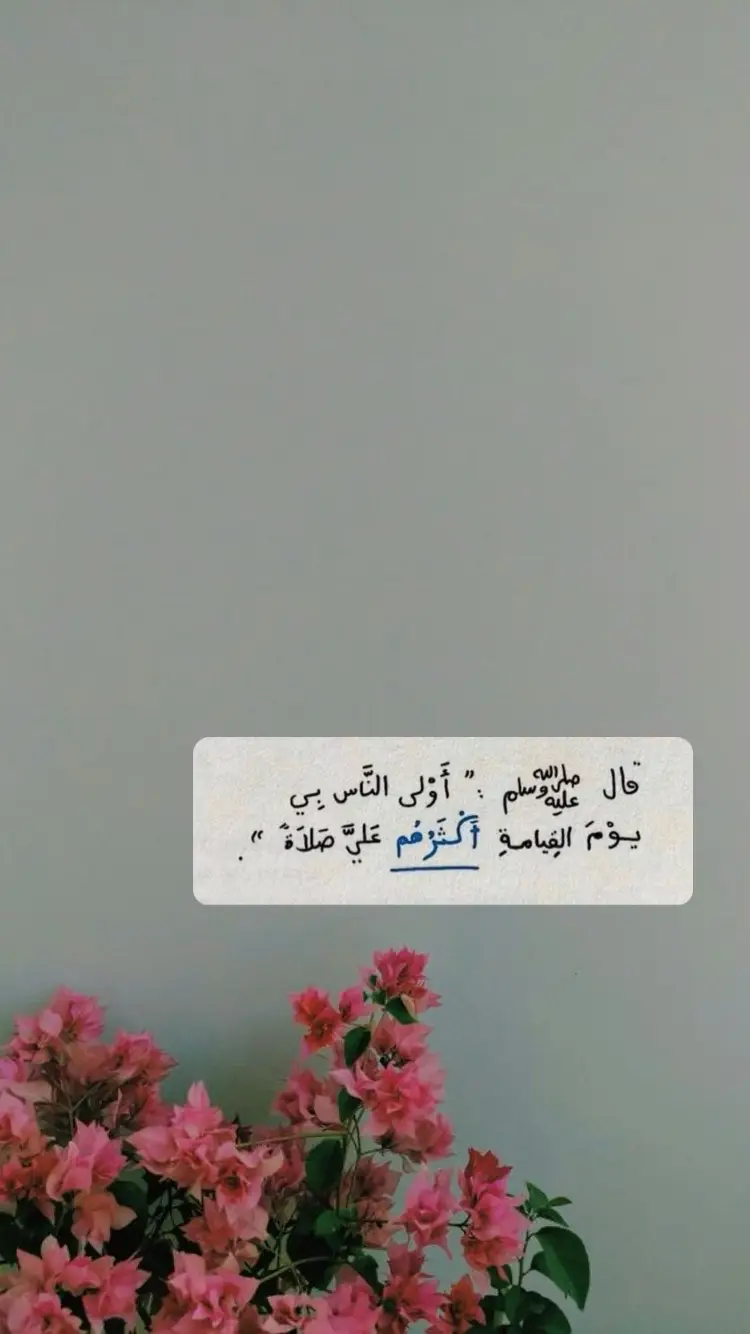 قال صلى الله عليه وسلم : " أَوْلى النَّاس بِي
يَوْمَ القِيامةِ أَكْثَرُهُم عَليَّ صَلاَةً " .